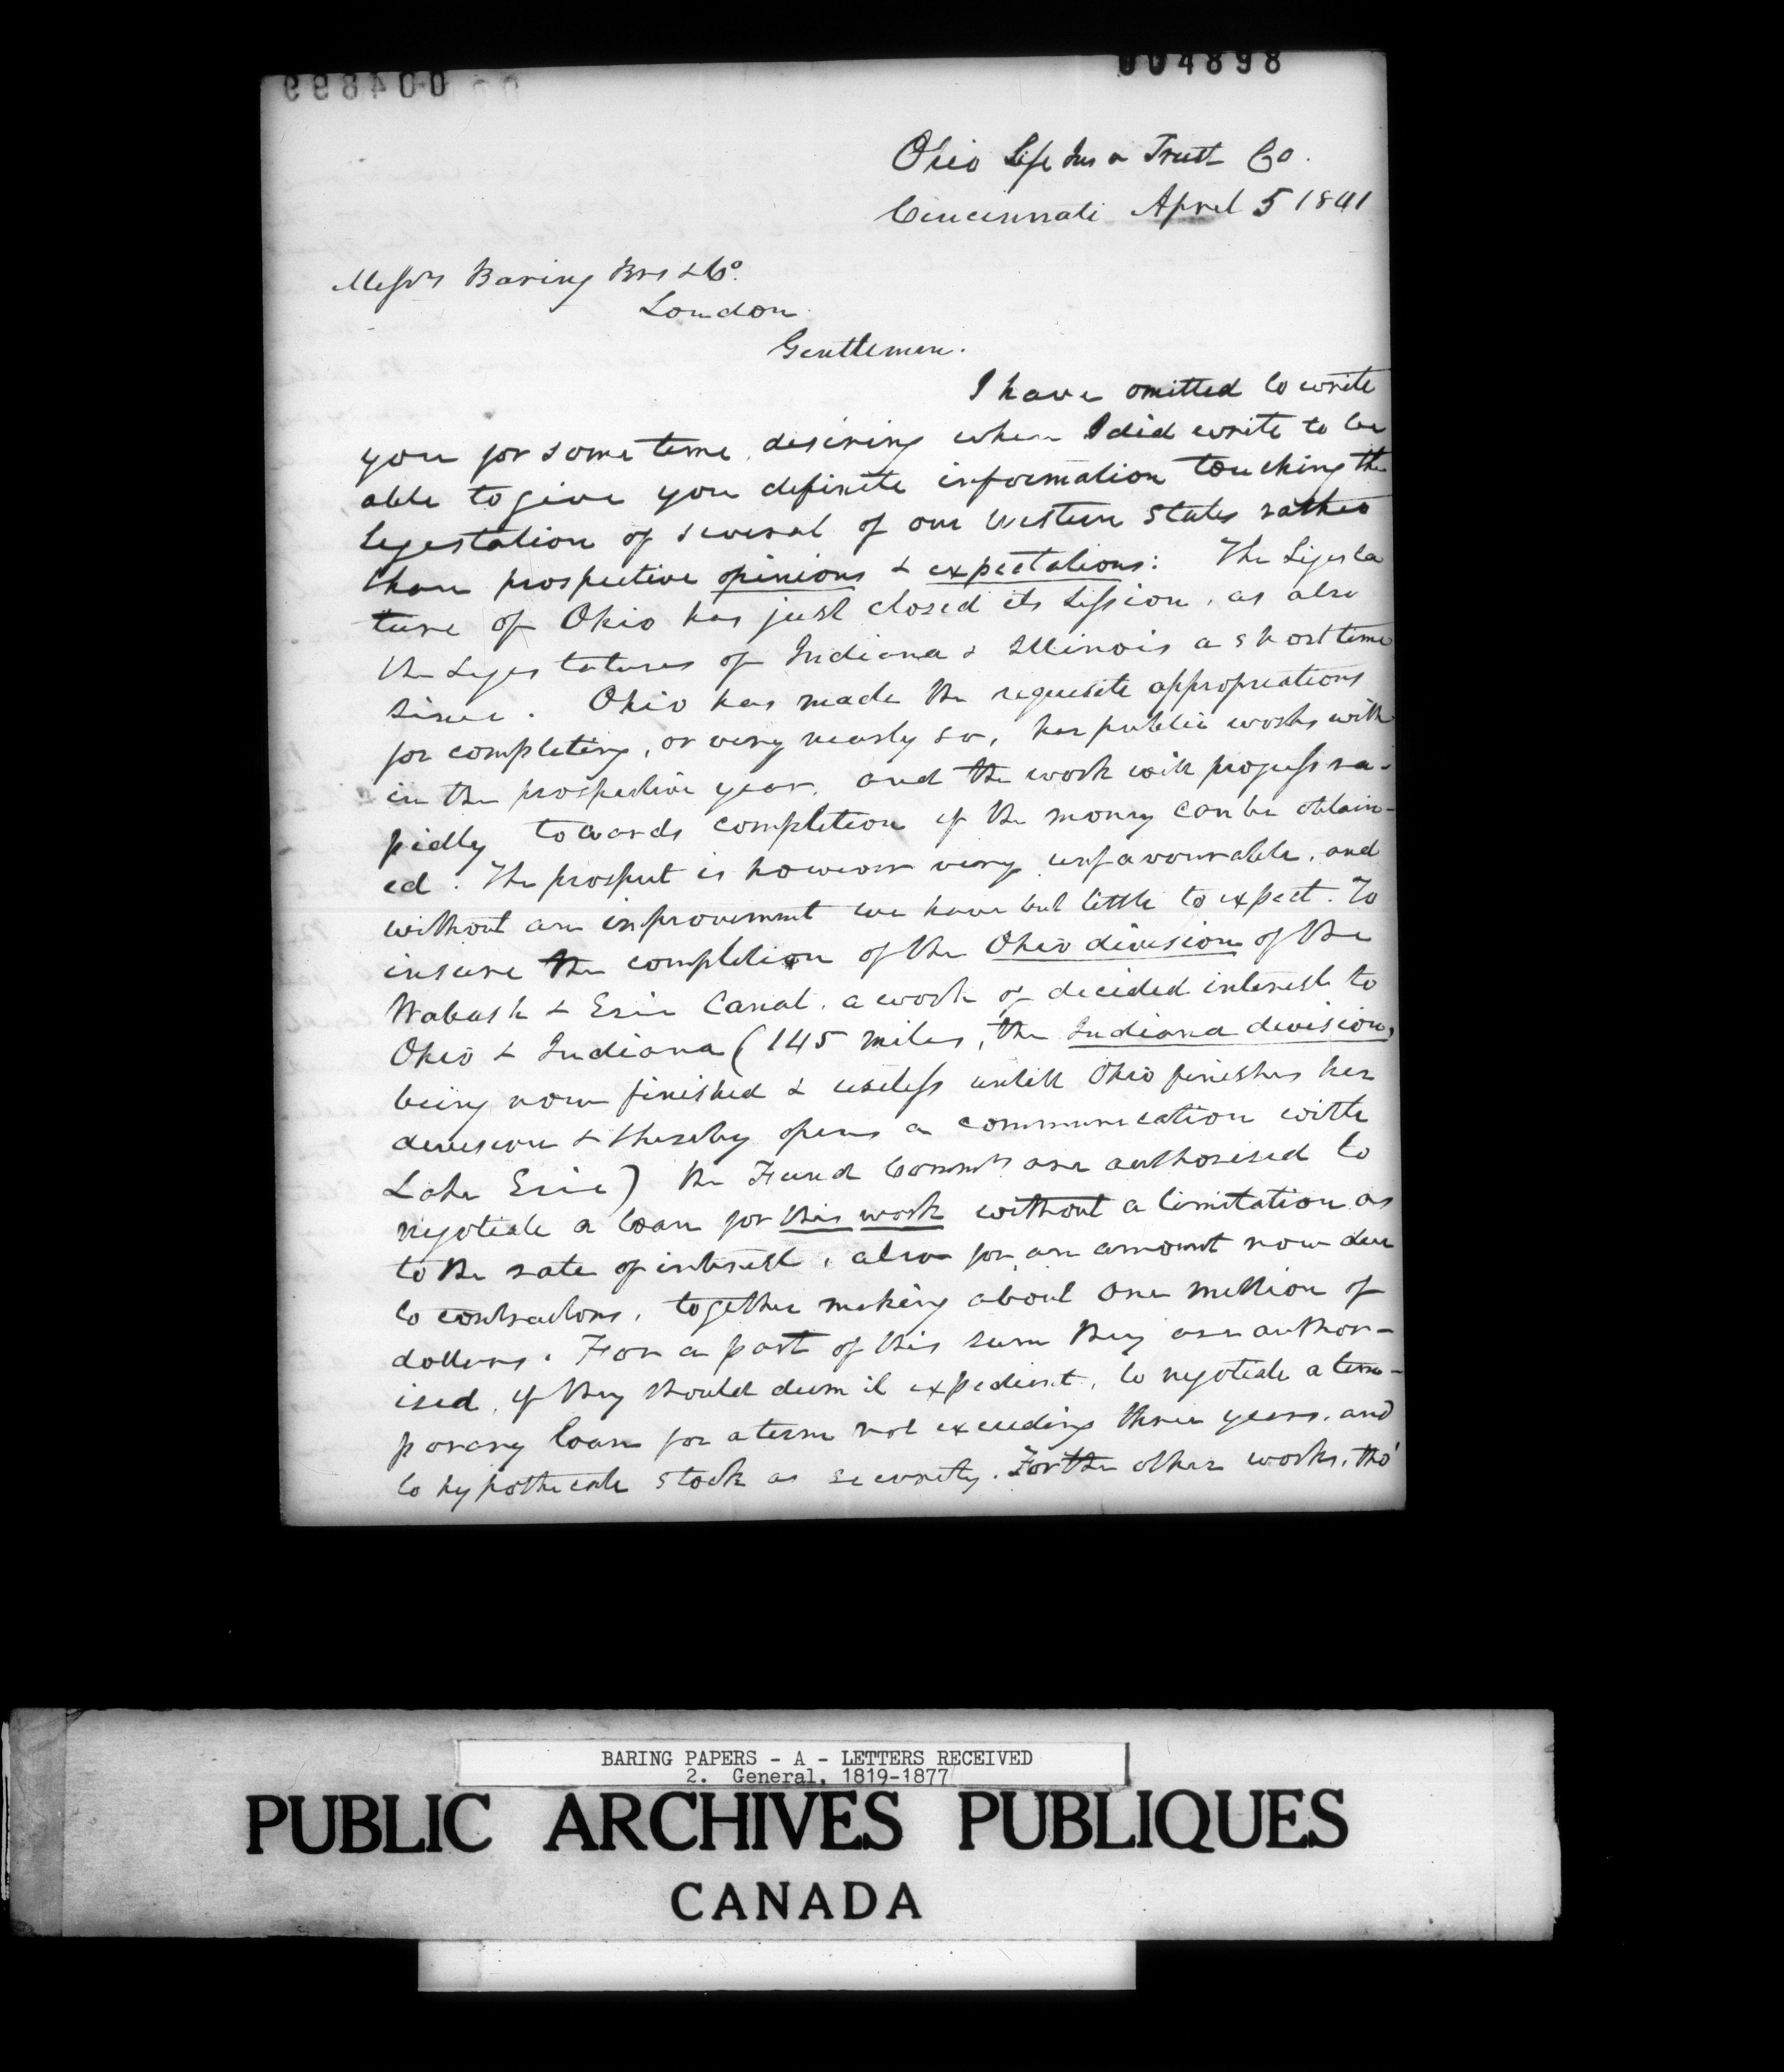 004898
004899
Ohio Life Ins & Trust Co.
Cincinnati April 5 1841
Messrs Baring Bros & Co.
London
Gentlemen.
I have omitted to write
you for some time, desiring when I did write to be
able to give you definite information touching the
legislation of several of our Western States rather
than prospective opinions & expectations: The Legisla
ture of Ohio has just closed its Session, as also
the Legislatures of Indiana & Illinois a short time
since. Ohio has made the requisite appropriations
for completing, or very nearly so, her public works with
in the prospective year, and the work will progress ra-
pidly towards completion if the money can be obtain-
ed. The prospect is however very unfavourable, and
without an improvement we have but little to expect. To
insure the completion of the Ohio division of the
Wabash & Erie Canal, a work of decided interest to
Ohio & Indiana (145 miles, the Indiana division,
being now finished & useless untill Ohio finishes her
division & thereby opens a communication with
Lake Erie) the Fund Commrs are authorised to
negotiate a loan for this work without a limitation as
to the rate of interest, also for an amount now due
to contractors, together making about one million of
dollars. For a part of this sum they are author-
ised, if they should deem it expedient, to negotiate a tem-
porary loan for a term not exceeding three years, and
to hypothecate stock as security. For the other works, tho'
BARING PAPERS - A - LETTERS RECEIVED
2. General, 1819-1877
PUBLIC ARCHIVES PUBLIQUES
CANADA